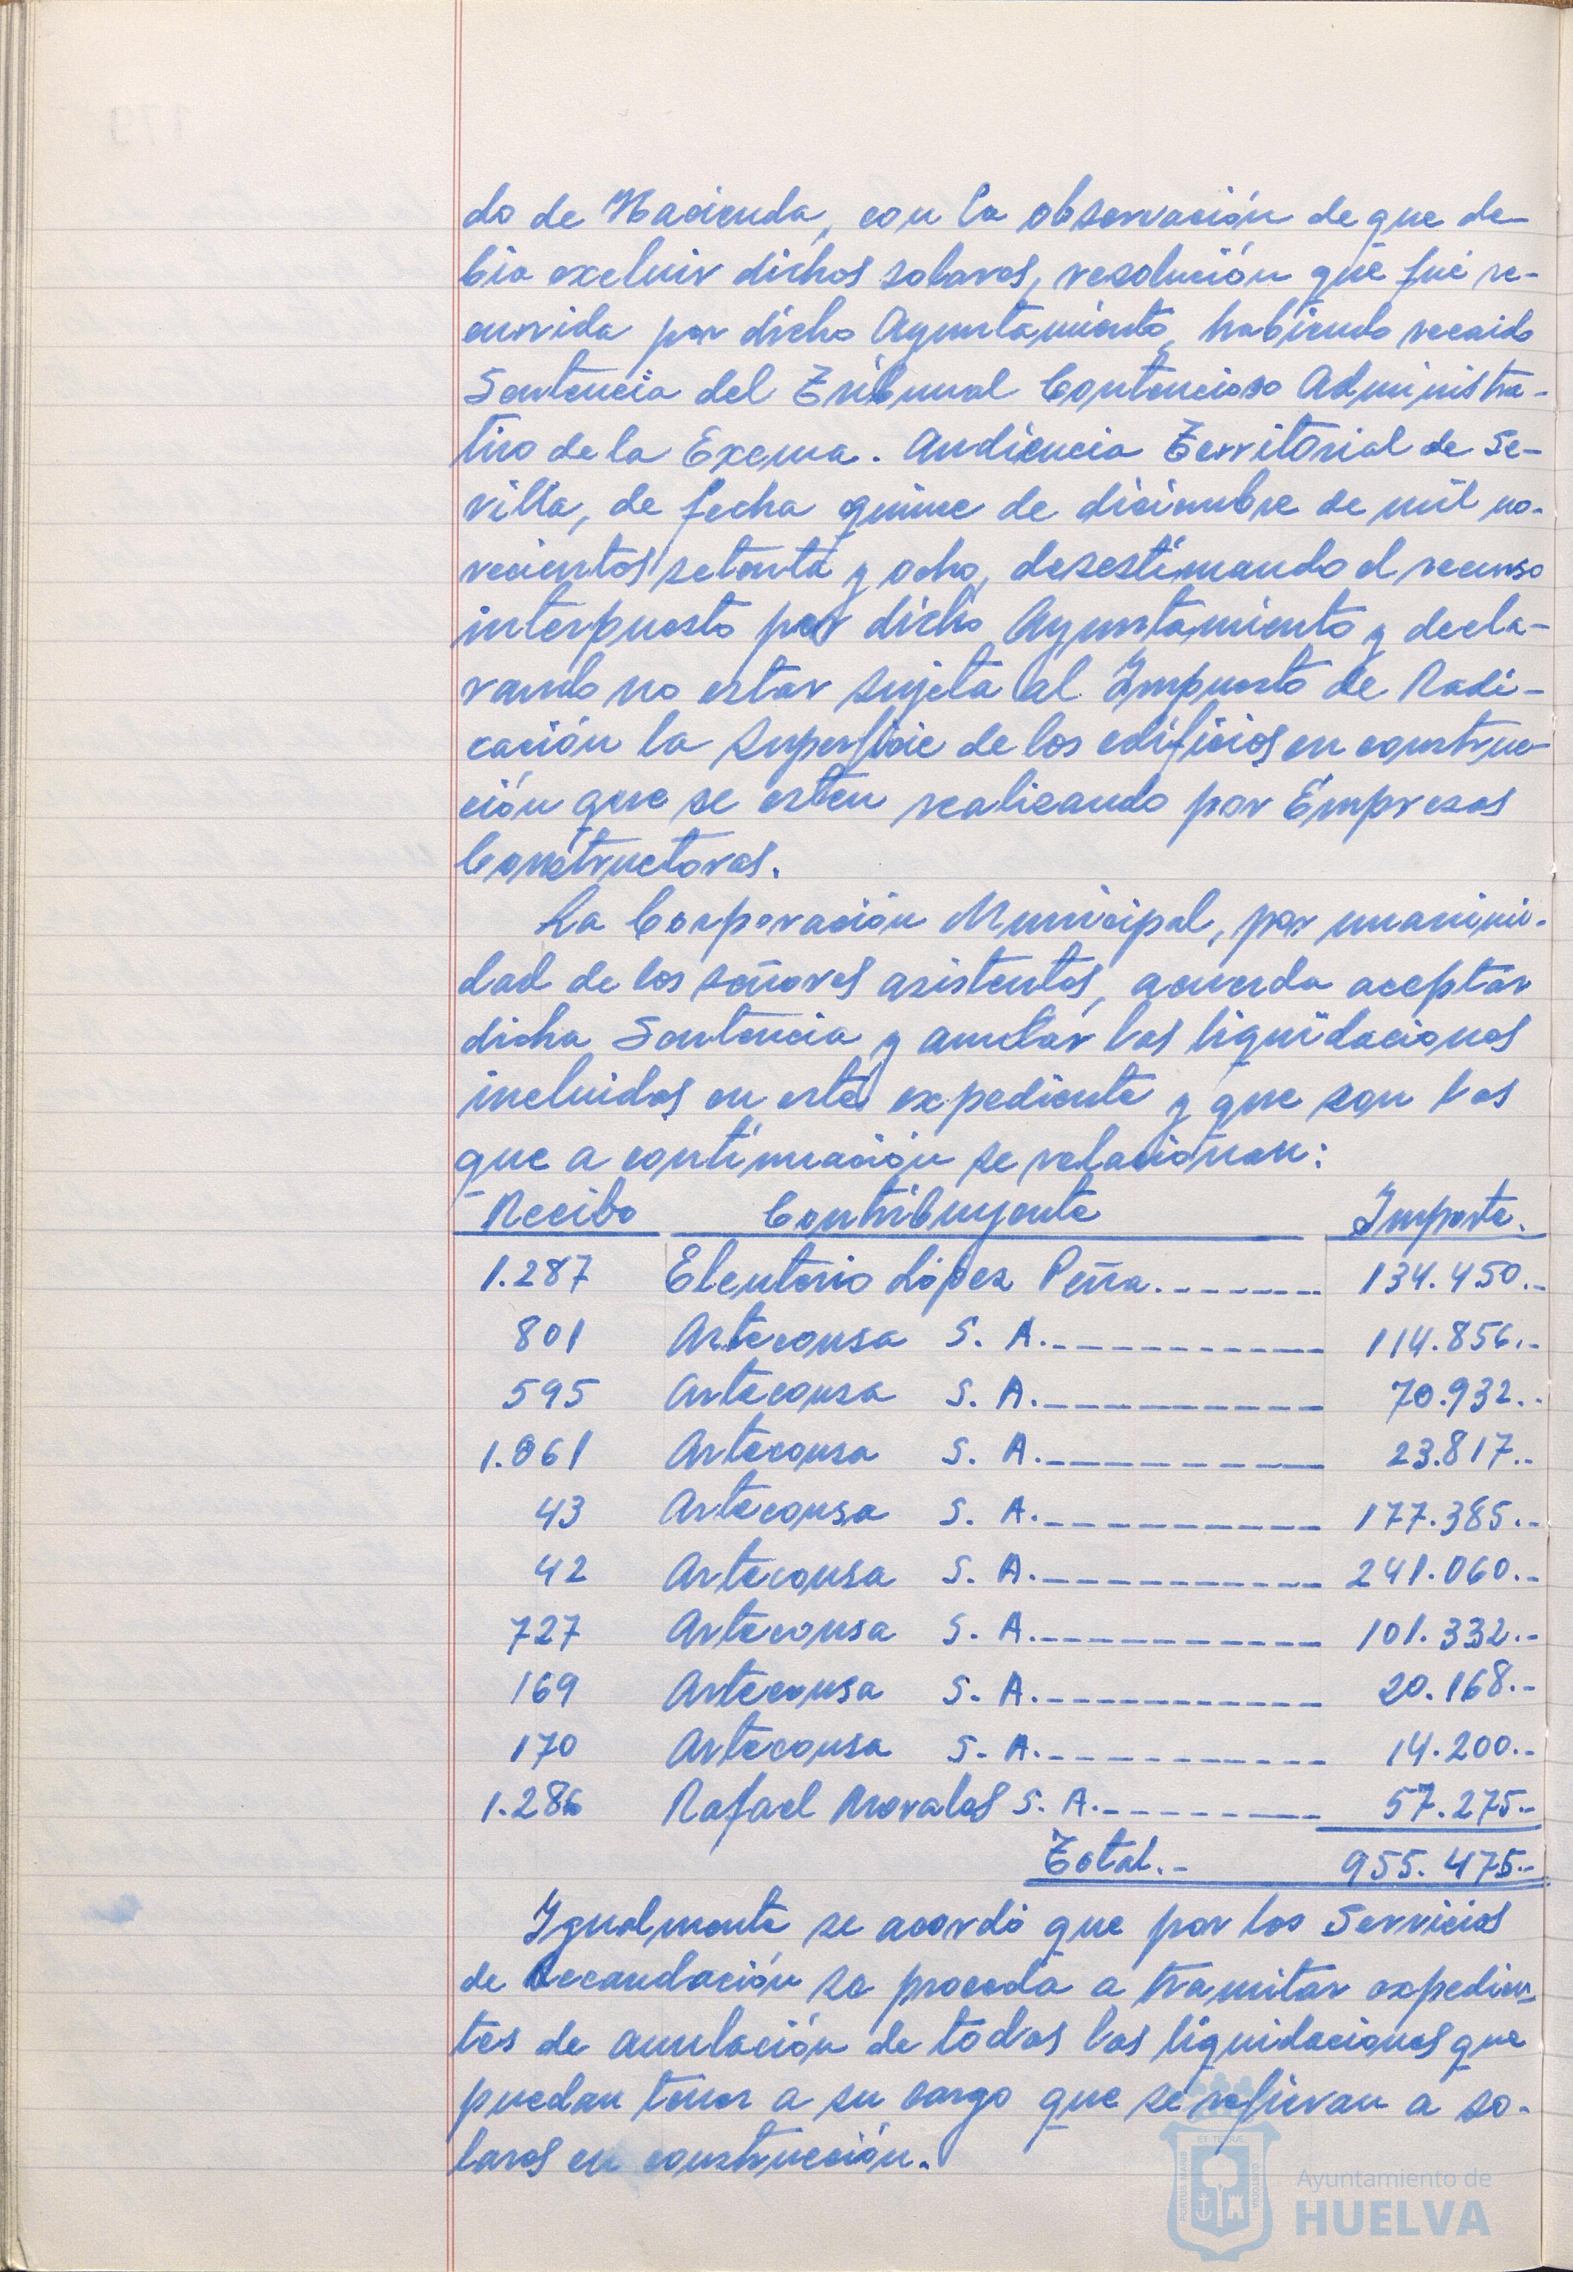 do de Hacienda, con la observación de que de-
bía excluir dichos solares, resolución que fué re-
currida por dicho Ayuntamiento, habiendo recaido
Sentencia del Tribunal Contencioso Administra-
tivo de la Excma. Audiencia Territorial de Se-
villa, de fecha quince de diciembre de mil no-
vecientos setenta y ocho, desestimando el recurso
interpuesto por dicho Ayuntamiento y decla-
rando no estar sujeta al Impuesto de Radi-
cación la superficie de los edificios en construc-
ción que se esten realizando por Empresas
Constructoras.
La Corporación Municipal, por unanimi-
dad de los señores asistentes, acuerda aceptar
dicha Sentencia y anular las liquidaciones
incluidas en este expediente y que son las
que a continuación se relacionan:
Recibo Contribuyente Importe.
1.287 Eleuterio López Peña.-------- 134.450.-
801 Arteconsa S. A.----------- 114.856.-
595 Arteconsa S. A.----------- 70.932.-
1.061 Arteconsa S. A.----------- 23.817.-
43 Arteconsa S. A.----------- 177.385.-
42 Arteconsa S. A.----------- 241.060.-
727 Arteconsa S. A.----------- 101.332.-
169 Arteconsa S. A.----------- 20.168.-
170 Arteconsa S. A.----------- 14.200.-
1.286 Rafael Morales S. A.-------- 57.275.-
Total.- 955.475.-
Igualmente se acordó que por los Servicios
de Recaudación se proceda a tramitar expedien-
tes de anulación de todas las liquidaciones que
puedan tener a su cargo que se refieran a so-
lares en construcción.
Ayuntamiento de
HUELVA